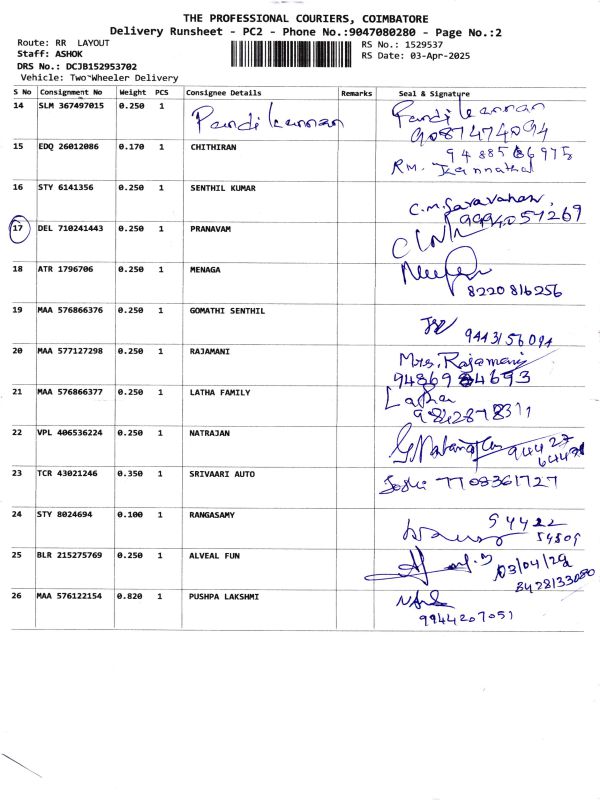 THE PROFESSIONAL COURIERS, COIMBATORE
Delivery Runsheet - PC2 - Phone No.:9047080280 - Page No.:2
Route: RR LAYOUT
RS No.: 1529537
Staff: ASHOK
RS Date: 03-Apr-2025
DRS No.: DCJB152953702
Vehicle: Two Wheeler Delivery
S No Consignment No Weight PCS Consignee Details Remarks Seal & Signature
14 SLM 367497015 0.250 1 Pandi Kannan Pandi Kannan
9087474094
15 EDQ 26012086 0.170 1 CHITHIRAN
RM. Kannathal
16 STY 6141356 0.250 1 SENTHIL KUMAR C.M. Saravanan.
9994057269
17 DEL 710241443 0.250 1 PRANAVAM
18 ATR 1796706 0.250 1 MENAGA
8220816256
19 MAA 576866376 0.250 1 GOMATHI SENTHIL
9443156094
20 MAA 577127298 0.250 1 RAJAMANI Mrs. Rajamani
9486984693
21 MAA 576866377 0.250 1 LATHA FAMILY Latha
22 VPL 406536224 0.250 1 NATRAJAN 94427
64471
23 TCR 43021246 0.350 1 SRIVAARI AUTO 7708361727
24 STY 8024694 0.100 1 RANGASAMY 94422
54509
25 BLR 215275769 0.250 1 ALVEAL FUN 03/04/29
26 MAA 576122154 0.820 1 PUSHPA LAKSHMI
9944207051